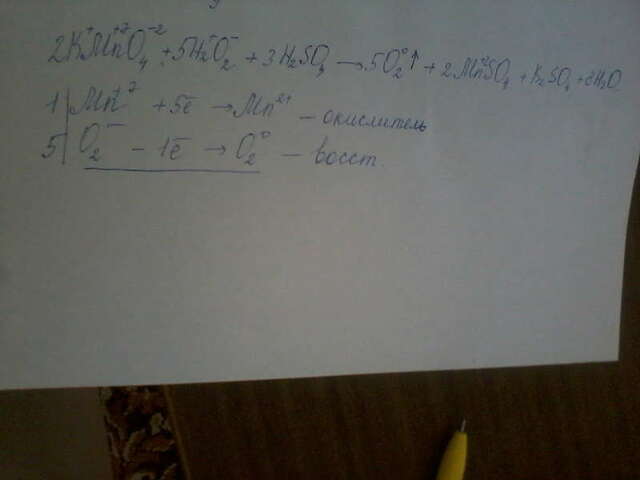 2K⁺Mn⁺⁷O₄⁻² + 5H₂⁺O₂⁻ + 3H₂SO₄ → 5O₂⁰↑ + 2Mn⁺²SO₄ + K₂SO₄ + 8H₂O
1 | Mn⁺⁷ + 5e̅ → Mn²⁺ – окислитель
5 | O₂⁻ – 1e̅ → O₂⁰ – восст.